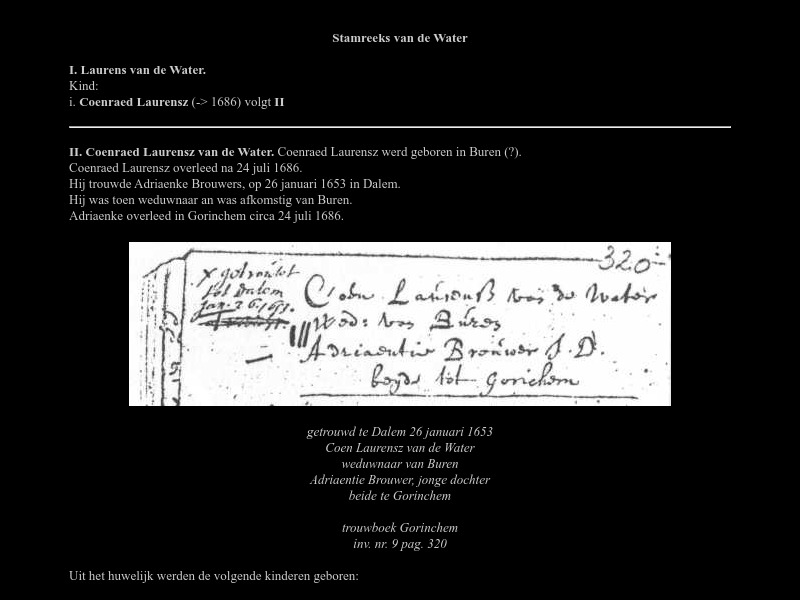 Stamreeks van de Water
I. Laurens van de Water.
Kind:
i. Coenraed Laurensz (-> 1686) volgt II
II. Coenraed Laurensz van de Water. Coenraed Laurensz werd geboren in Buren (?).
Coenraed Laurensz overleed na 24 juli 1686.
Hij trouwde Adriaenke Brouwers, op 26 januari 1653 in Dalem.
Hij was toen weduwnaar an was afkomstig van Buren.
Adriaenke overleed in Gorinchem circa 24 juli 1686.
320
x getrout
tot Dalem
Jan. 26.
Coen Laurensß van de Water
Wed: van Buren
Adriaentie Brouwer J.D.
beyde tot gorichem
getrouwd te Dalem 26 januari 1653
Coen Laurensz van de Water
weduwnaar van Buren
Adriaentie Brouwer, jonge dochter
beide te Gorinchem
trouwboek Gorinchem
inv. nr. 9 pag. 320
Uit het huwelijk werden de volgende kinderen geboren: